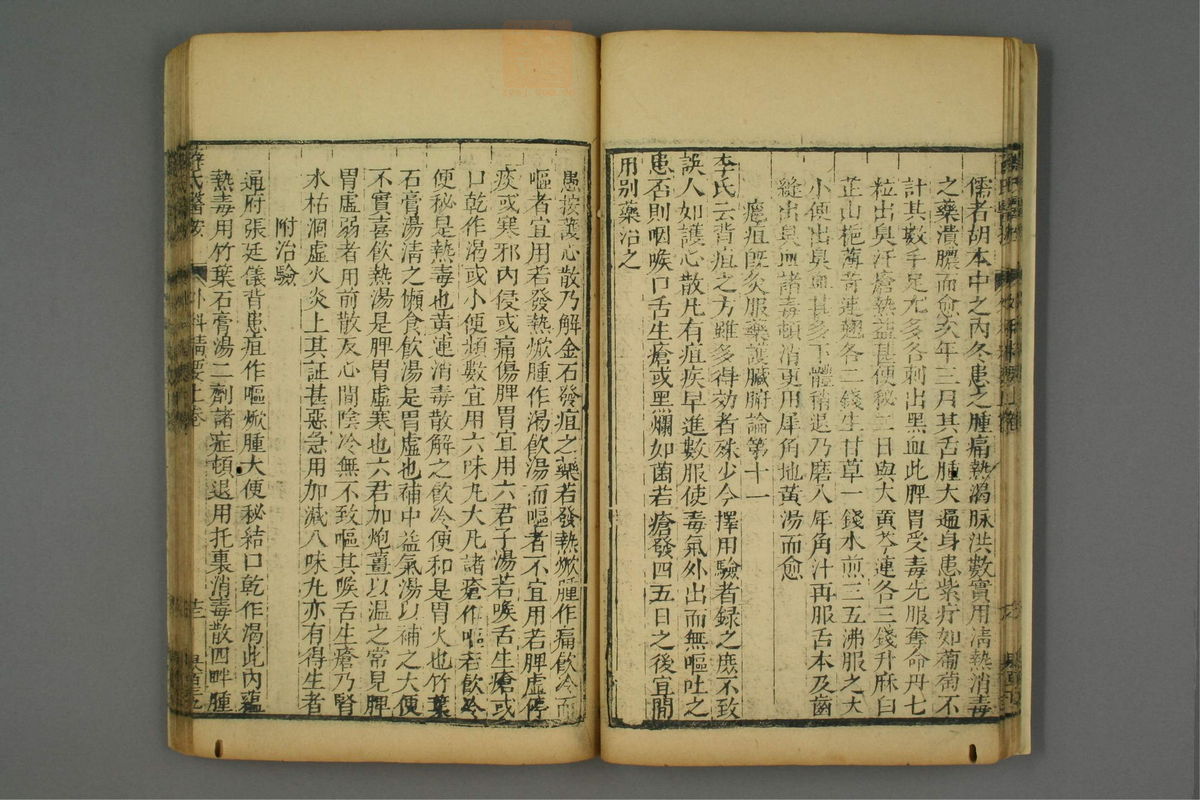 儒者胡本中之內冬患之腫痛熱渴脉洪數實用清熱消毒
之藥潰膿而愈亥年三月其舌腫大遍身患紫疔如葡萄不
計其數手足尤多各刺出黑血此脾胃受毒先服奪命丹七
粒出臭汗瘡熱益甚便秘二日與大黃芩連各三錢升麻白
芷山梔薄荷連翹各二錢生甘草一錢水煎三五沸服之大
小便出臭血甚多下體稍退乃磨入犀角汁再服舌本及齒
縫出臭血諸毒頓消更用犀角地黃湯而愈
癰疽既灸服藥護臟腑論第十一
李氏云背疽之方雖多得効者殊少今擇用驗者録之庶不致
誤人如護心散凡有疽疾早進數服使毒氣外出而無嘔吐之
患否則咽喉口舌生瘡或黑爛如菌若瘡發四五日之後宜間
用别藥治之
愚按護心散乃解金石發疽之藥若發熱焮腫作痛飲冷而
嘔者宜用若發熱焮腫作渴飲湯而嘔者不宜用若脾虛停
痰或寒邪內侵或痛傷脾胃宜用六君子湯若喉舌生瘡或
口乾作渴或小便頻數宜用六味丸大凡諸瘡作嘔若飲冷
便秘是熱毒也黃連消毒散解之飲冷便和是胃火也竹葉
石膏湯清之懶食飲湯是胃虛也補中益氣湯以補之大便
不實喜飲熱湯是脾胃虛寒也六君加炮薑以温之常見脾
胃虛弱者用前散反心間陰冷無不致嘔其喉舌生瘡乃腎
水枯涸虛火炎上其証甚惡急用加減八味丸亦有得生者
附治驗
通府張廷儀背患疽作嘔焮腫大便秘結口乾作渴此內蘊
熱毒用竹葉石膏湯二劑諸症頓退用托裏消毒散四畔腫
薛氏醫按 外科精要上卷